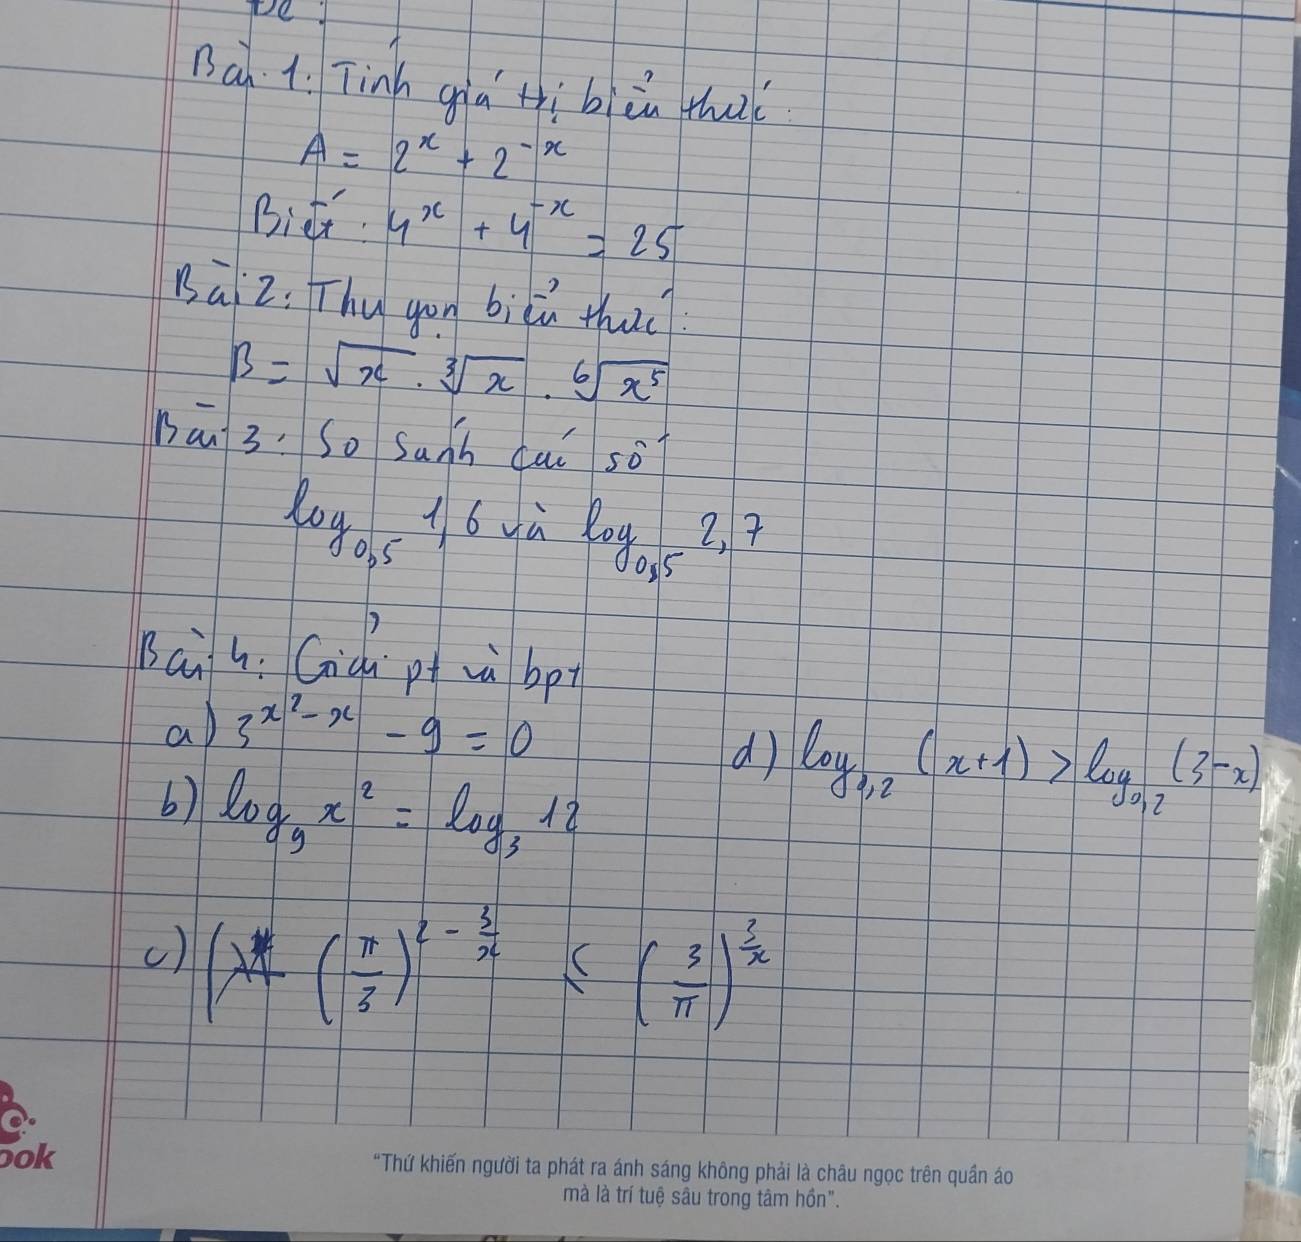 Bài 1: Tính giá trị biểu thức.
A = 2^x + 2^-x
Biết: 4^x + 4^-x = 25
Bài 2: Thu gọn biểu thức:
B = √x . ³√x . ⁶√x⁵
Bài 3: So sánh các số
log_0,5 1,6 và log_0,5 2,7
Bài 4: Giải pt và bpt
a) 3^(x²-x) - 9 = 0
d) log_0,2 (x+1) > log_0,2 (3-x)
b) log_9 x² = log_3 12
c) (π/3)^(2 - 3/x) ≤ (3/π)^(3/x)
ook
"Thứ khiến người ta phát ra ánh sáng không phải là châu ngọc trên quần áo
mà là trí tuệ sâu trong tâm hồn".